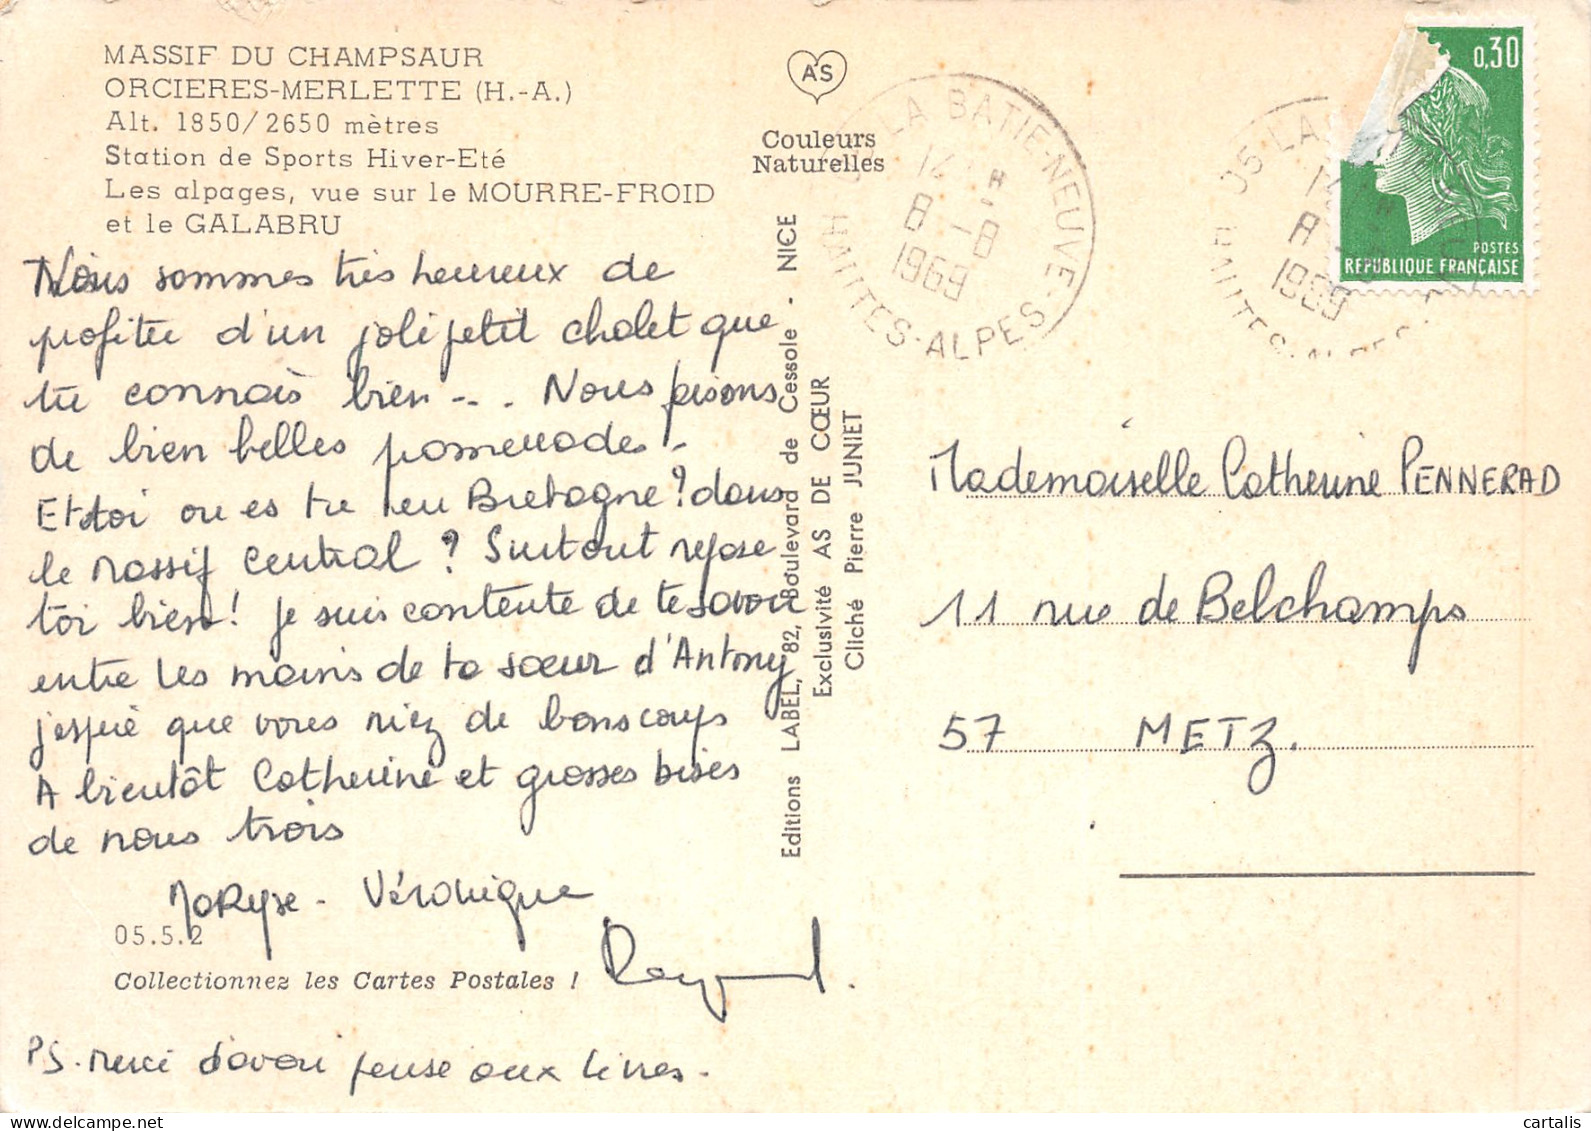 MASSIF DU CHAMPSAUR
ORCIERES-MERLETTE (H.-A.)
Alt. 1850/2650 mètres
Station de Sports Hiver-Eté
Les alpages, vue sur le MOURRE-FROID
et le GALABRU
Nous sommes très heureux de
profiter d'un joli petit chalet que
tu connais bien -.. Nous faisons
de bien belles promenades.
Et toi ou es tu en Bretagne ? dans
le Massif Central ? Surtout repose
toi bien ! je suis contente de te savoir
entre les mains de ta sœur d'Antony
j'espère que vous riez de bons coups
A bientôt Catherine et grosses bises
de nous trois
Maryse - Véronique
Raymond.
05.5.2
Collectionnez les Cartes Postales !
PS. Merci d'avoir pensé aux livres.
AS
Couleurs
Naturelles
Editions LABEL, 82, Boulevard de Cessole . NICE
Exclusivité AS DE CŒUR
Cliché Pierre JUNIET
LA BATIE-NEUVE
HAUTES-ALPES
14 H
8 -8
1969
05 LA
8
1969
0,30
POSTES
RÉPUBLIQUE FRANÇAISE
Mademoiselle Catherine PENNERAD
11 rue de Belchamps
57 METZ.
delcampe.net
cartalis